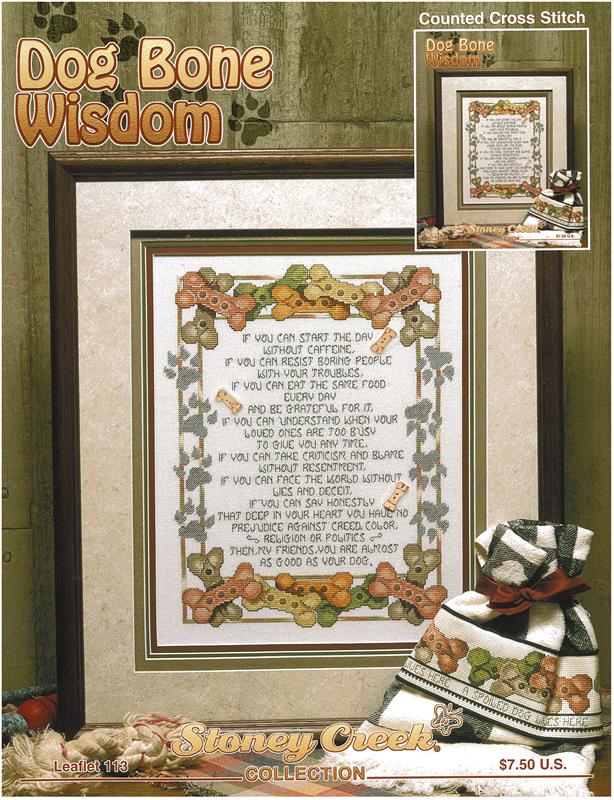 Counted Cross Stitch
Dog Bone
Wisdom
Dog Bone
Wisdom
Stoney Creek
$7.50 U.S.
IF YOU CAN START THE DAY
WITHOUT CAFFEINE,
IF YOU CAN RESIST BORING PEOPLE
WITH YOUR TROUBLES,
IF YOU CAN EAT THE SAME FOOD
EVERY DAY
AND BE GRATEFUL FOR IT,
IF YOU CAN UNDERSTAND WHEN YOUR
LOVED ONES ARE TOO BUSY
TO GIVE YOU ANY TIME,
IF YOU CAN TAKE CRITICISM AND BLAME
WITHOUT RESENTMENT,
IF YOU CAN FACE THE WORLD WITHOUT
LIES AND DECEIT,
IF YOU CAN SAY HONESTLY
THAT DEEP IN YOUR HEART YOU HAVE NO
PREJUDICE AGAINST CREED, COLOR,
RELIGION OR POLITICS
THEN, MY FRIENDS, YOU ARE ALMOST
AS GOOD AS YOUR DOG.
LIVES HERE A SPOILED DOG LIVES HERE
Stoney Creek®
COLLECTION
Leaflet 113
$7.50 U.S.